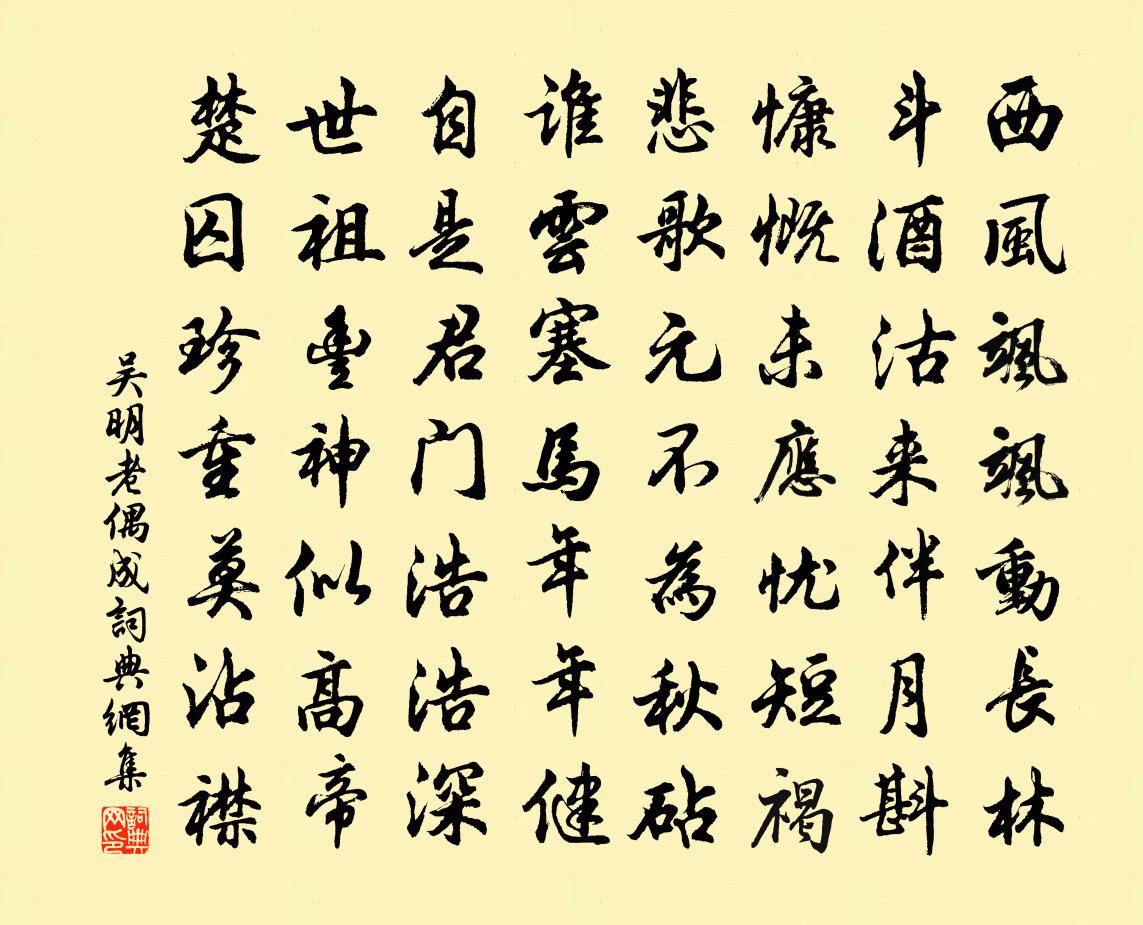 西風颯颯動長林
斗酒沽来伴月斟
慷慨未應忧短褐
悲歌元不為秋砧
誰雲塞馬年年健
自是君门浩浩深
世祖豊神似高帝
楚囚珍重莫沾襟
吴明老偶成詞典網集
詞典网印